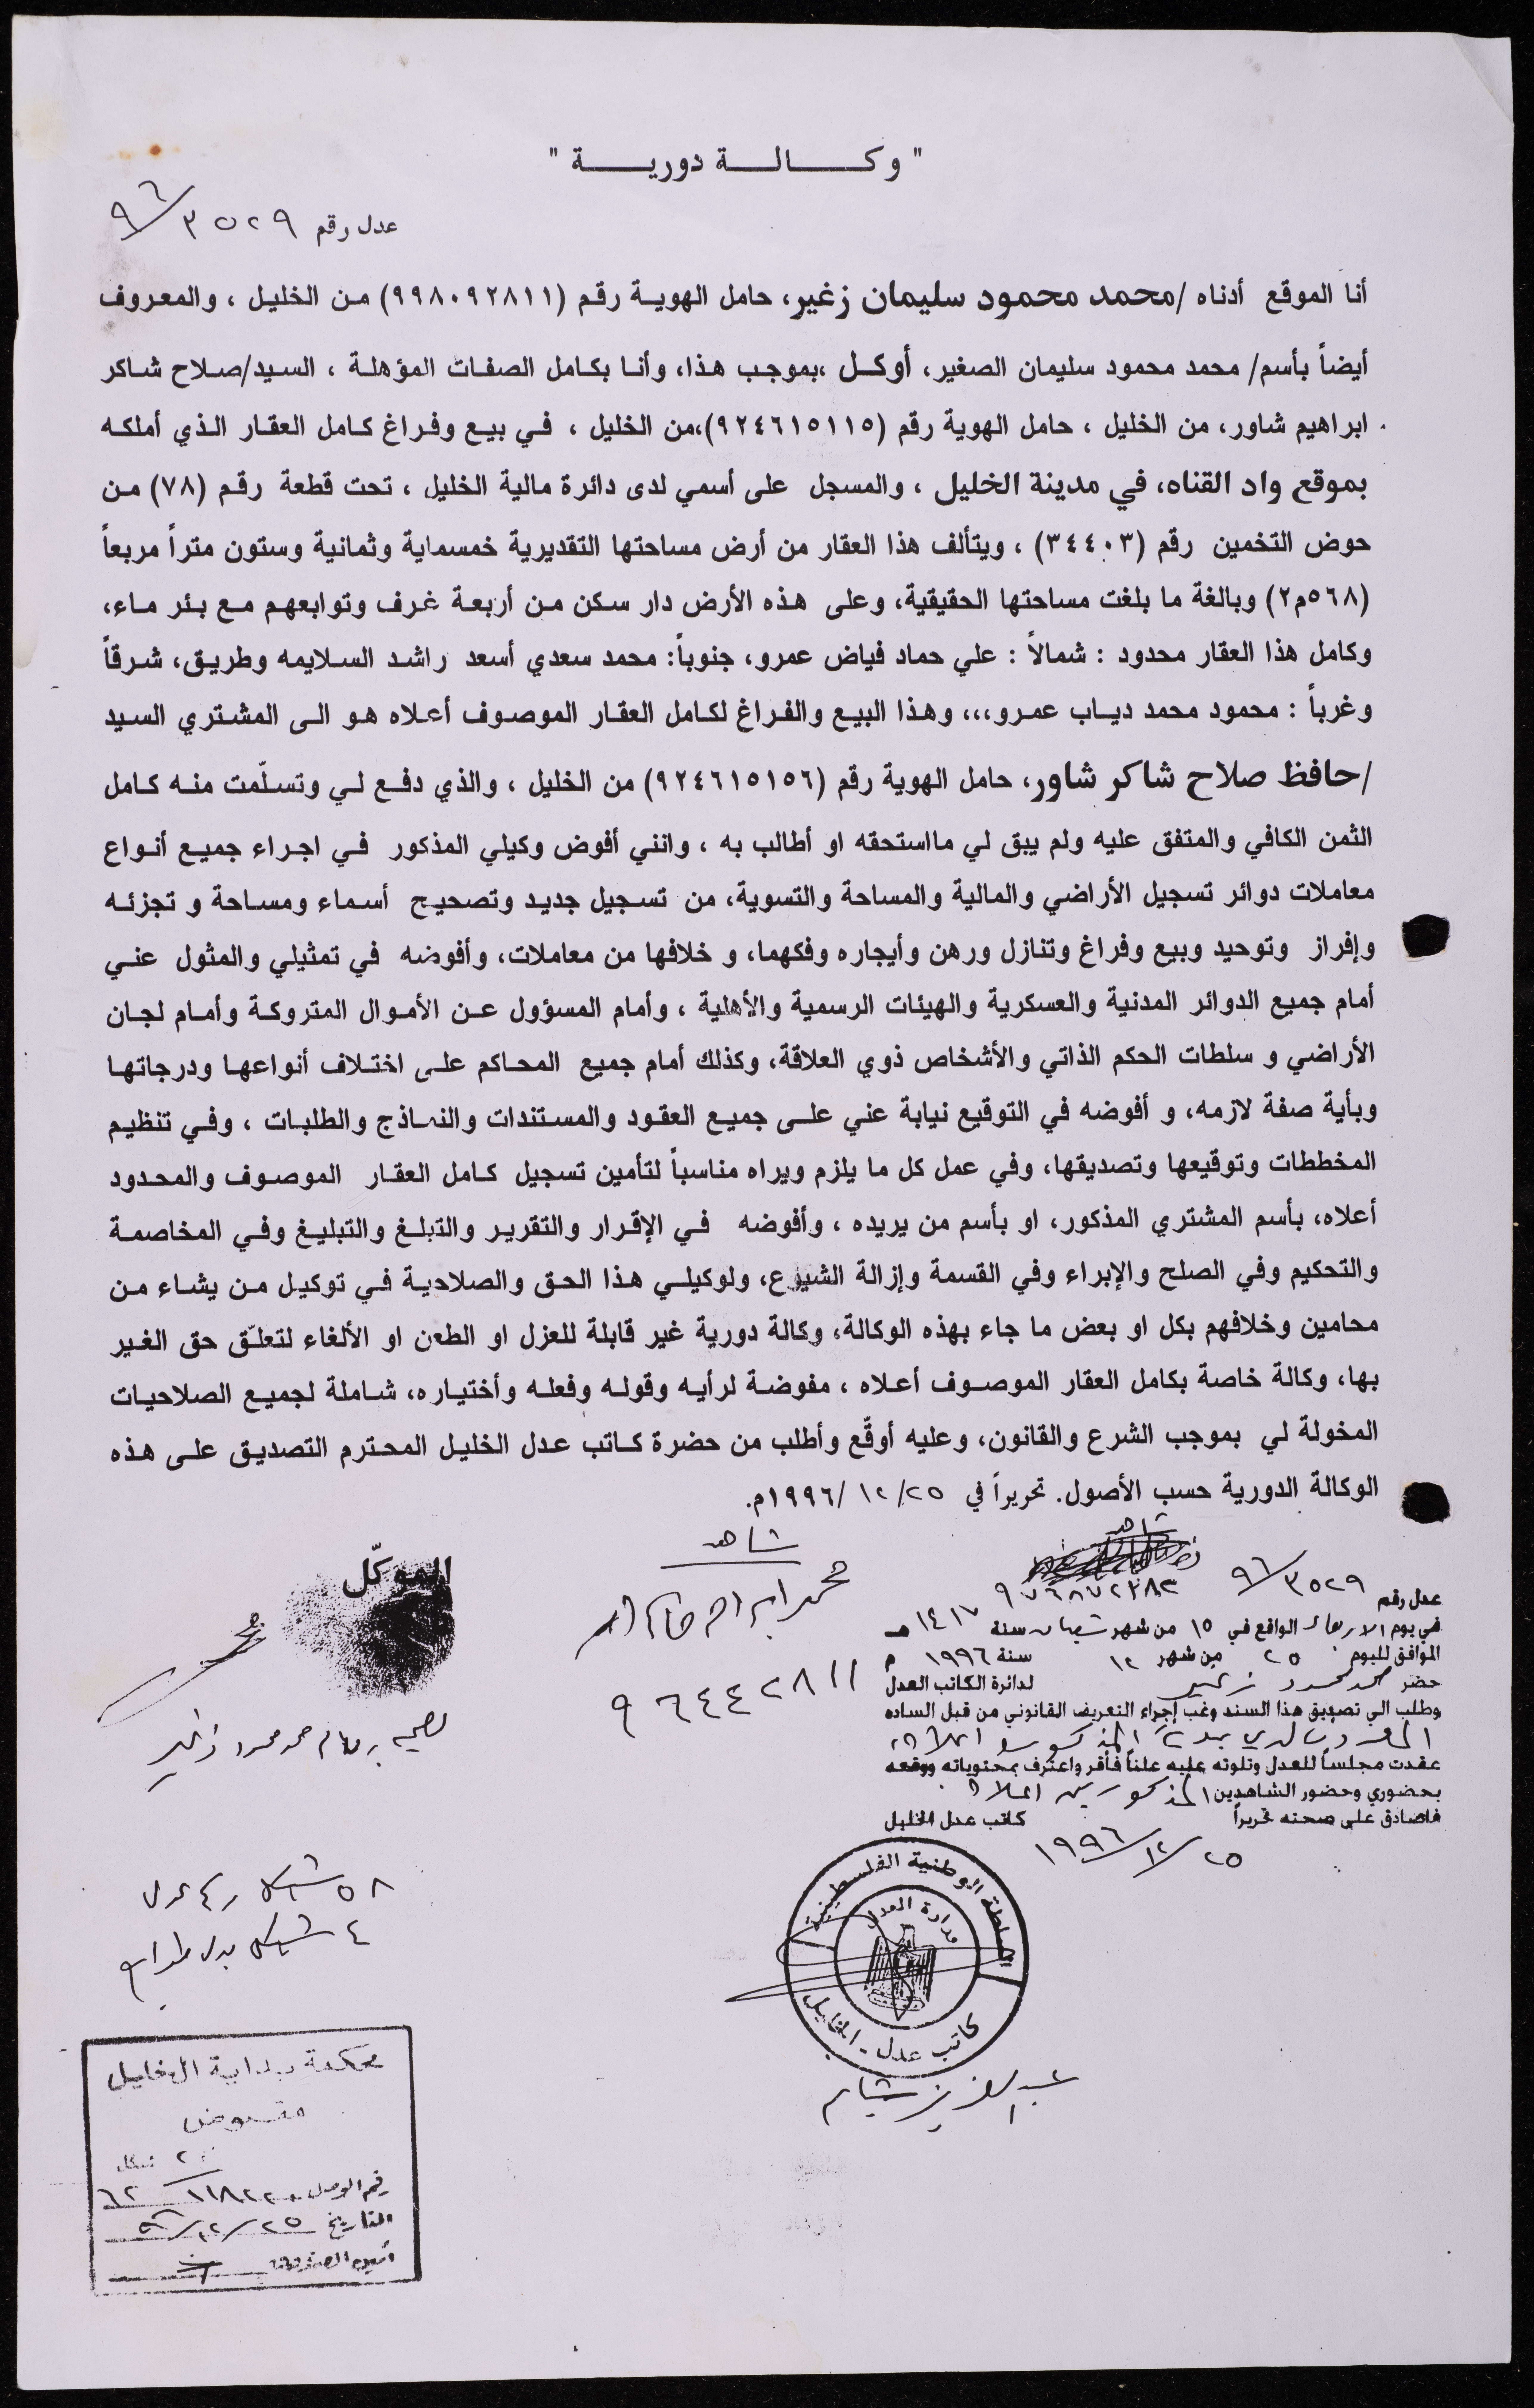 " وكـــالـــة دوريــــة "
عدل رقم ٣٥٢٩/٩٦
أنا الموقع أدناه /محمد محمود سليمان زغير، حامل الهوية رقم (٩٩٨٠٩٢٨١١) من الخليل ، والمعروف
أيضاً بأسم/ محمد محمود سليمان الصغير، أوكل ،بموجب هذا، وأنا بكامل الصفات المؤهلة ، السيد/صلاح شاكر
ابراهيم شاور، من الخليل ، حامل الهوية رقم (٩٢٤٦١٥١١٥)،من الخليل ، في بيع وفراغ كامل العقار الذي أملكه
بموقع واد القناه، في مدينة الخليل ، والمسجل على أسمي لدى دائرة مالية الخليل ، تحت قطعة رقم (٧٨) من
حوض التخمين رقم (٣٤٤٠٣) ، ويتألف هذا العقار من أرض مساحتها التقديرية خمسماية وثمانية وستون متراً مربعاً
(٥٦٨م٢) وبالغة ما بلغت مساحتها الحقيقية، وعلى هذه الأرض دار سكن من أربعة غرف وتوابعهم مع بئر ماء،
وكامل هذا العقار محدود : شمالاً : علي حماد فياض عمرو، جنوباً: محمد سعدي أسعد راشد السلايمه وطريق، شرقاً
وغرباً : محمود محمد دياب عمرو،،، وهذا البيع والفراغ لكامل العقار الموصوف أعلاه هو الى المشتري السيد
/حافظ صلاح شاكر شاور، حامل الهوية رقم (٩٢٤٦١٥١٥٦) من الخليل ، والذي دفع لي وتسلّمت منه كامل
الثمن الكافي والمتفق عليه ولم يبق لي مااستحقه او أطالب به ، وانني أفوض وكيلي المذكور في اجراء جميع أنواع
معاملات دوائر تسجيل الأراضي والمالية والمساحة والتسوية، من تسجيل جديد وتصحيح أسماء ومساحة و تجزئه
وإفراز وتوحيد وبيع وفراغ وتنازل ورهن وأيجاره وفكهما، و خلافها من معاملات، وأفوضه في تمثيلي والمثول عني
أمام جميع الدوائر المدنية والعسكرية والهيئات الرسمية والأهلية ، وأمام المسؤول عن الأموال المتروكة وأمام لجان
الأراضي و سلطات الحكم الذاتي والأشخاص ذوي العلاقة، وكذلك أمام جميع المحاكم على اختلاف أنواعها ودرجاتها
وبأية صفة لازمه، و أفوضه في التوقيع نيابة عني على جميع العقود والمستندات والنماذج والطلبات ، وفي تنظيم
المخططات وتوقيعها وتصديقها، وفي عمل كل ما يلزم ويراه مناسباً لتأمين تسجيل كامل العقار الموصوف والمحدود
أعلاه، بأسم المشتري المذكور، او بأسم من يريده ، وأفوضه في الإقرار والتقرير والتبلغ والتبليغ وفي المخاصمة
والتحكيم وفي الصلح والإبراء وفي القسمة وإزالة الشيوع، ولوكيلي هذا الحق والصلاحية في توكيل من يشاء من
محامين وخلافهم بكل او بعض ما جاء بهذه الوكالة، وكالة دورية غير قابلة للعزل او الطعن او الألغاء لتعلّق حق الغير
بها، وكالة خاصة بكامل العقار الموصوف أعلاه ، مفوضة لرأيه وقوله وفعله وأختياره، شاملة لجميع الصلاحيات
المخولة لي بموجب الشرع والقانون، وعليه أوقّع وأطلب من حضرة كاتب عدل الخليل المحترم التصديق على هذه
الوكالة الدورية حسب الأصول. تحريراً في ٢٥/ ١٢ /١٩٩٦م.
شاهد
شاهد
محمد ابراهيم
٩٦٤٤٢٨١١
الموكّل
محمد محمود زغير
عدل رقم ٣٥٢٩/٩٦
في يوم الاربعاء الواقع في ١٥ من شهر شعبان سنة ١٤١٧ هـ
الموافق لليوم ٢٥ من شهر ١٢ سنة ١٩٩٦ م
حضر محمد محمود زغير لدائرة الكاتب العدل
وطلب الي تصديق هذا السند وغب إجراء التعريف القانوني من قبل الساده
المعروفين لدي بهذا المذكورين اعلاه
عقدت مجلساً للعدل وتلوته عليه علناً فأقر واعترف بمحتوياته ووقعه
بحضوري وحضور الشاهدين المذكورين اعلاه
فاصادق على صحته تحريراً كاتب عدل الخليل
٢٥/١٢/١٩٩٦
السلطة الوطنية الفلسطينية
وزارة العدل
كاتب عدل - الخليل
٥٨ شيكل رسم عدل
٤ شيكل بدل طوابع
محكمة بداية الخليل
مقبوض
شيكل
رقم الوصل
التاريخ ٢٥/١٢/٩٦
أمين الصندوق